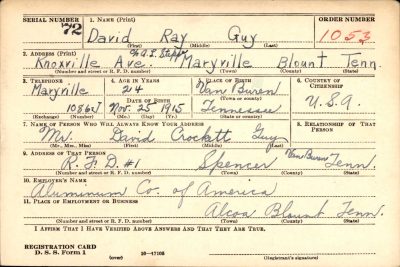 SERIAL NUMBER 1. NAME (Print) ORDER NUMBER
72 David Ray Guy 1053
(First) (Middle) (Last)
2. ADDRESS (Print)
Knoxville Ave. Maryville Blount Tenn.
(Number and street or R. F. D. number) (Town) (County) (State)
3. TELEPHONE 4. AGE IN YEARS 5. PLACE OF BIRTH 6. COUNTRY OF CITIZENSHIP
Maryville 24 Van Buren
DATE OF BIRTH (Town or county) U.S.A.
1086J Nov. 25 1915 Tennessee
(Exchange) (Number) (Mo.) (Day) (Yr.) (State or country)
7. NAME OF PERSON WHO WILL ALWAYS KNOW YOUR ADDRESS 8. RELATIONSHIP OF THAT PERSON
Mr. David Crockett Guy
(Mr., Mrs., Miss) (First) (Middle) (Last)
9. ADDRESS OF THAT PERSON
R.F.D. #1 Spencer Van Buren Tenn.
(Number and street or R. F. D. number) (Town) (County) (State)
10. EMPLOYER'S NAME
Aluminum Co. of America
11. PLACE OF EMPLOYMENT OR BUSINESS
Alcoa Blount Tenn.
(Number and street or R. F. D. number) (Town) (County) (State)
I AFFIRM THAT I HAVE VERIFIED ABOVE ANSWERS AND THAT THEY ARE TRUE.
REGISTRATION CARD
D. S. S. Form 1 (over) 16—17105 (Registrant's signature)